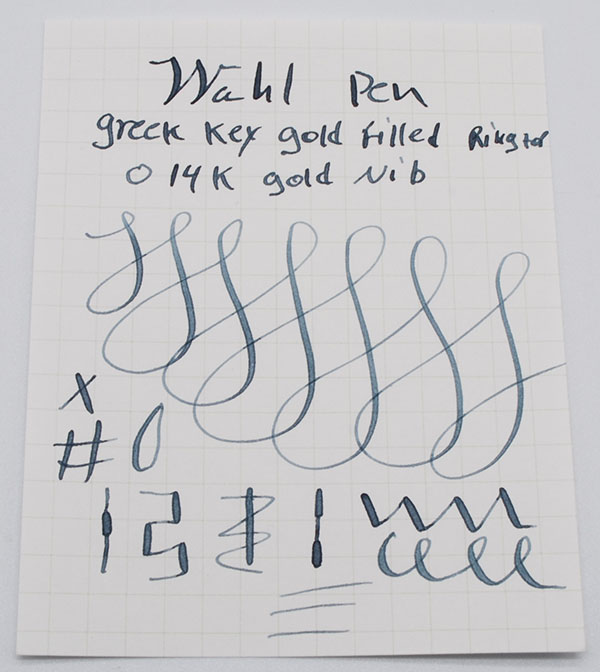 Wahl Pen
greek key gold filled Ringtop
0 14K gold Nib
X
# 0